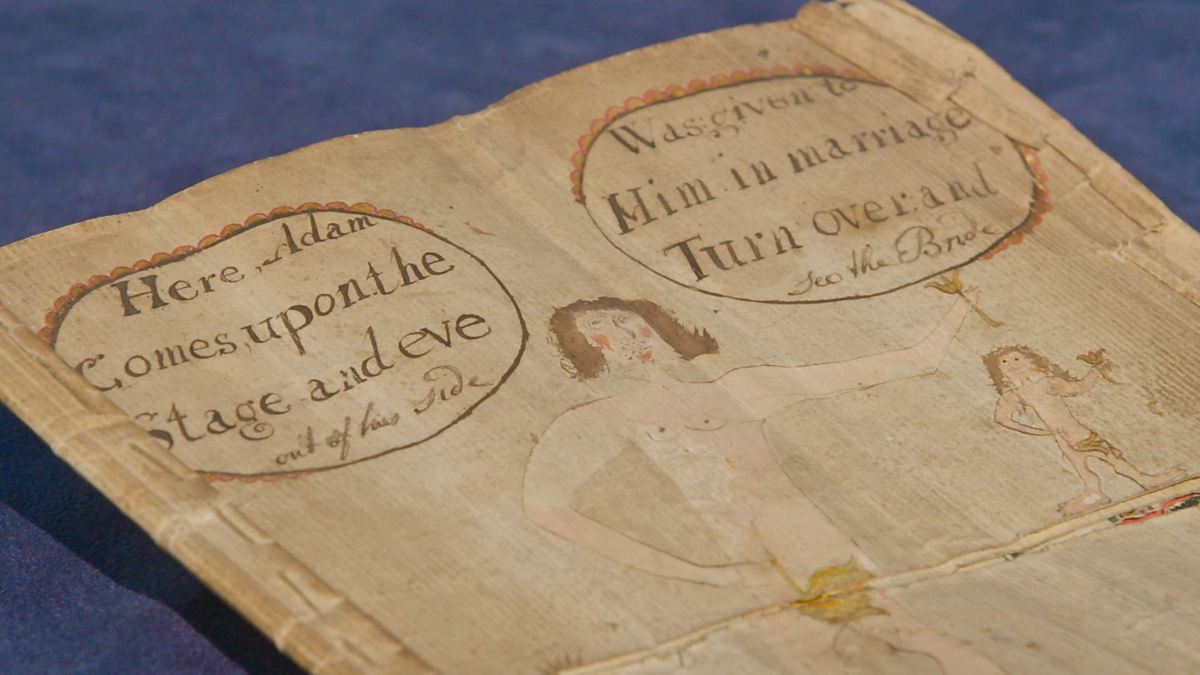 Here, Adam
Comes, upon the
Stage and eve
out of his side
Was given to
Him in marriage
Turn over: and
See the Bride